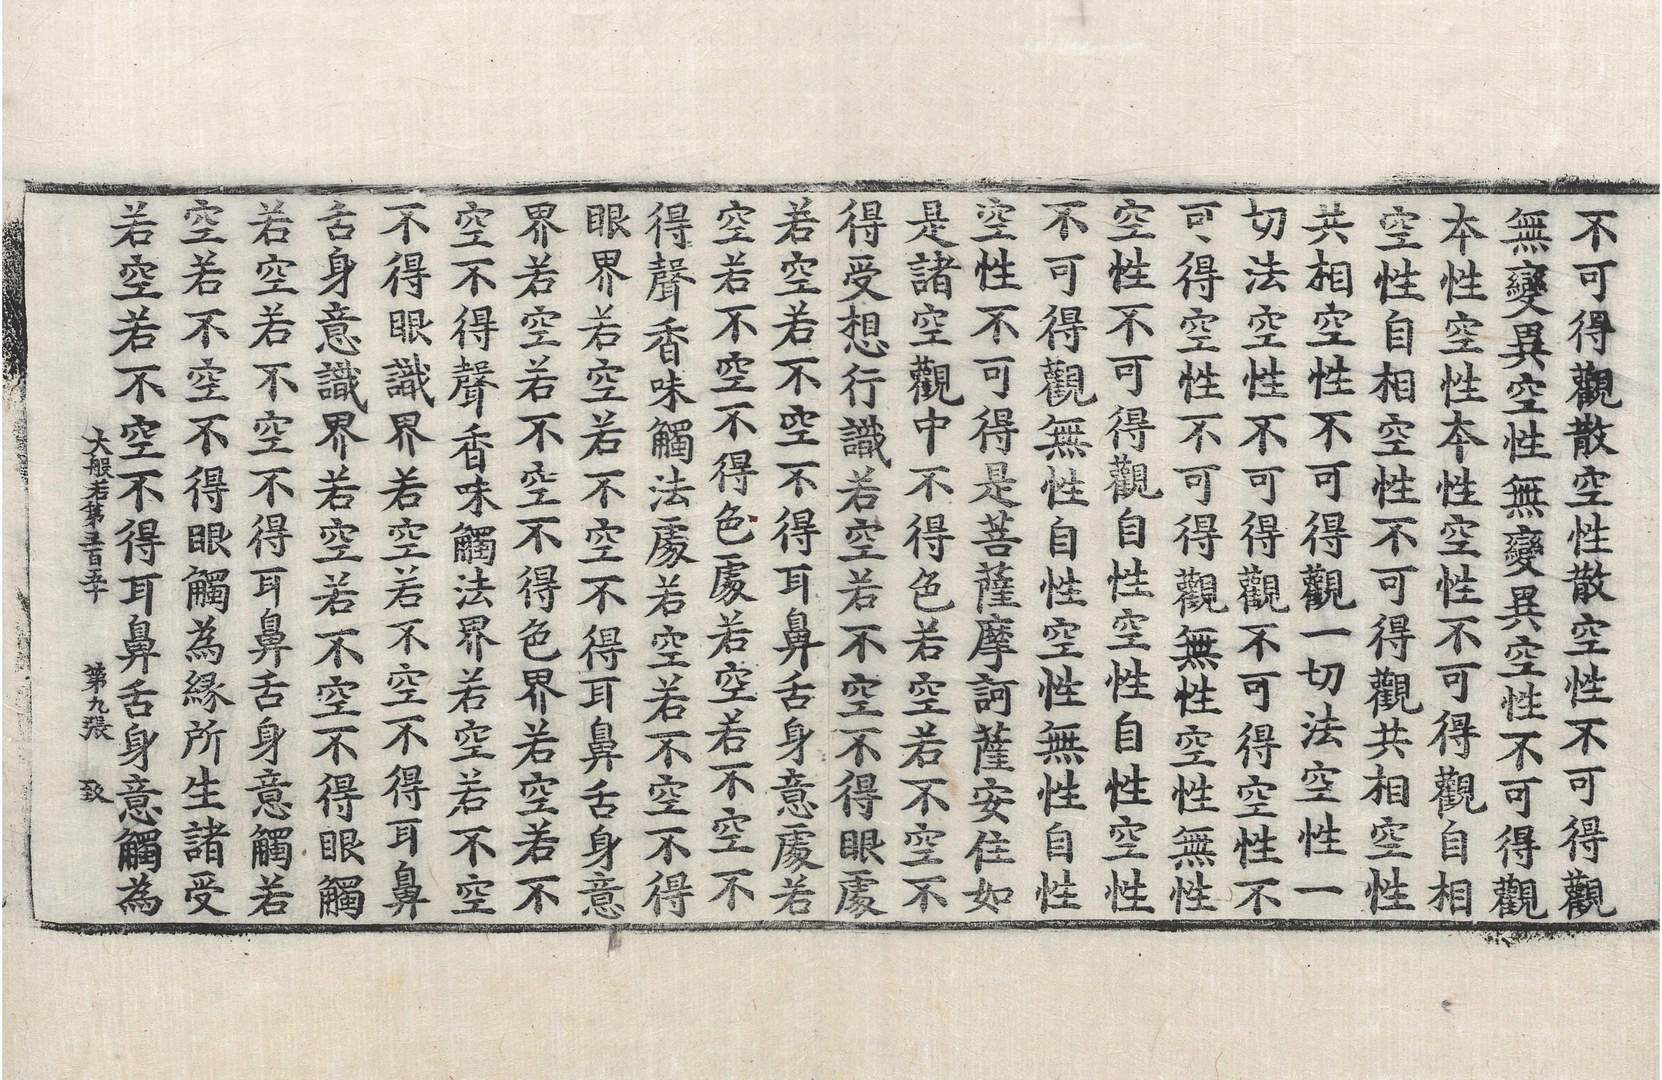 不可得觀散空性散空性不可得觀
無變異空性無變異空性不可得觀
本性空性本性空性不可得觀自相
空性自相空性不可得觀共相空性
共相空性不可得觀一切法空性一
切法空性不可得觀不可得空性不
可得空性不可得觀無性空性無性
空性不可得觀自性空性自性空性
不可得觀無性自性空性無性自性
空性不可得是菩薩摩訶薩安住如
是諸空觀中不得色若空若不空不
得受想行識若空若不空不得眼處
若空若不空不得耳鼻舌身意處若
空若不空不得色處若空若不空不
得聲香味觸法處若空若不空不得
眼界若空若不空不得耳鼻舌身意
界若空若不空不得色界若空若不
空不得聲香味觸法界若空若不空
不得眼識界若空若不空不得耳鼻
舌身意識界若空若不空不得眼觸
若空若不空不得耳鼻舌身意觸若
空若不空不得眼觸為緣所生諸受
若空若不空不得耳鼻舌身意觸為
大般若第五百五十 第九張 致